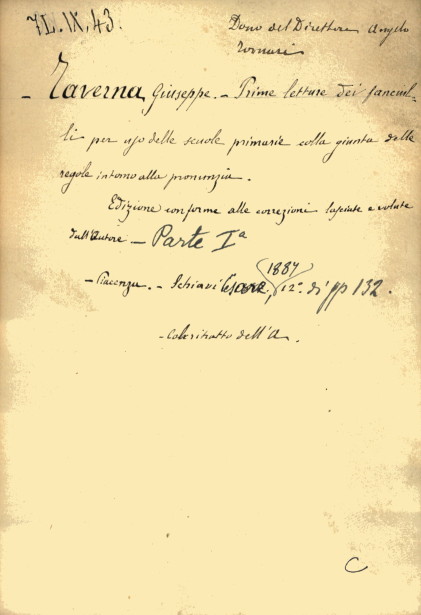 7L.IX,43.
Dono del Direttore Angelo
- Taverna Giuseppe. - Prime letture dei fanciul-
li per uso delle scuole primarie colla giunta delle
regole intorno alla pronunzia.
Edizione conforme alle correzioni lasciate e volute
dall'Autore - Parte Iª
1887
- Piacenza. - Schiavi, 12º. di pp 132.
- Col ritratto dell'A.
C